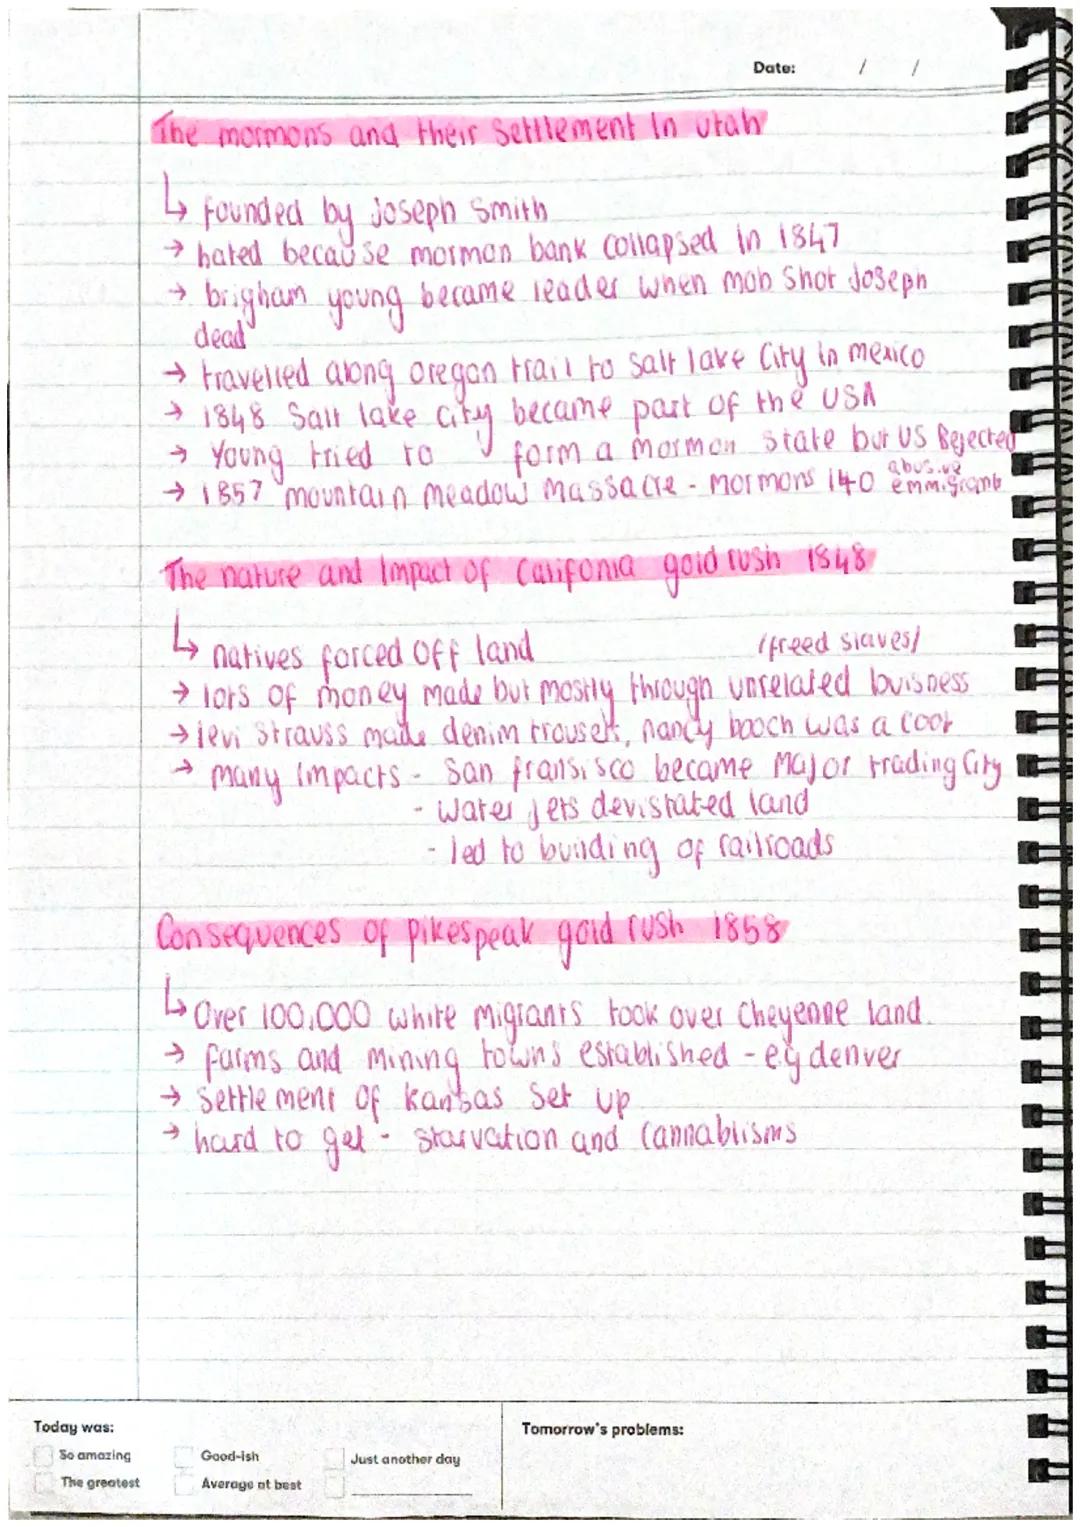 Date: / /
The mormons and their settlement in utah
↳ founded by Joseph Smith
→ hated because mormon bank collapsed in 1847
→ brigham young became leader when mob shot Joseph
dead
→ travelled along oregon trail to salt lake City in mexico
→ 1848 Salt lake city became part of the USA
→ Young tried to form a mormon state but US Rejected
→ 1857 mountain meadow massacre - mormons 140 abusive emmigrants
The nature and Impact of Califonia gold rush 1848
↳ natives forced off land /freed slaves/
→ lots of money made but mostly through unrelated buisness
→ levi Strauss made denim trousers, nancy gooch was a cook
→ many Impacts - San fransisco became Major trading City
- Water jets devistated land
- led to building of railroads
Consequences of pikes peak gold rush 1858
↳ Over 100,000 white migrants took over Cheyenne land.
→ farms and mining towns established - eg denver
→ Settlement of kansas Set up
→ hard to get - Starvation and Cannablisms
Today was:
So amazing
Good-ish
Just another day
The greatest
Average at best
Tomorrow's problems: